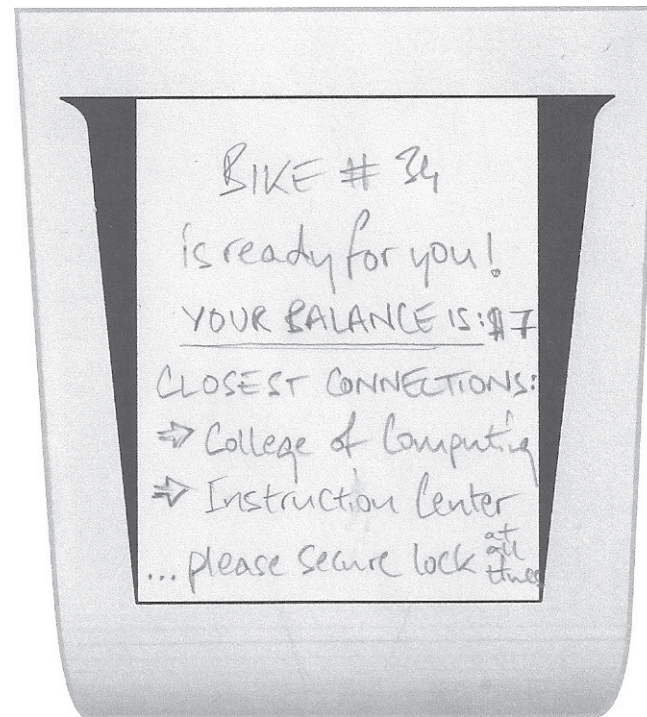 BIKE # 34
is ready for you!
YOUR BALANCE IS: $7
CLOSEST CONNECTIONS:
⇒ College of Computing
⇒ Instruction Center
... please secure lock at all times